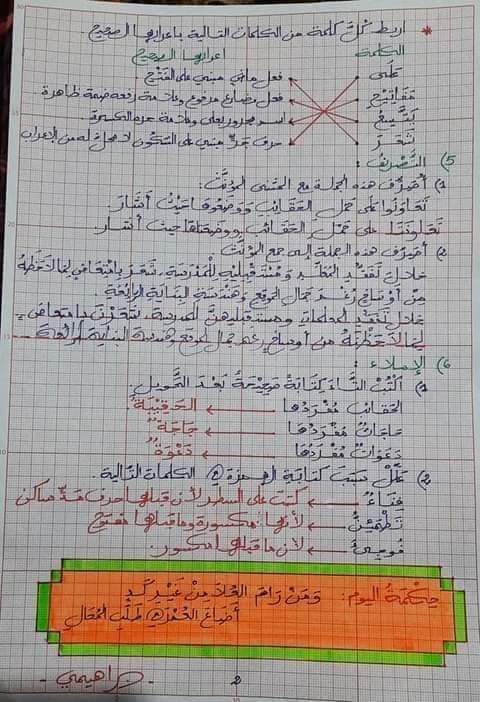 * اربط كل كلمة من الكلمات التالية بإعرابها الصحيح.
الكلمة إعرابها الصحيح
على فعل ماضي مبني على الفتح
مفاتيح فعل مضارع مرفوع وعلامة رفعه ضمة ظاهرة
يتبع اسم مجرور بعلى وعلامة جره الكسرة
شعر حرف جر مبني على السكون لا محل له من الإعراب
5) التصريف:
1) أصرف هذه الجملة مع المثنى المؤنث:
تعاونوا على حمل الحقائب ووضعوها حيث أشار.
تعاونتا على حمل الحقائب ووضعتاها حيث أشار.
2) أصرف هذه الجملة إلى جمع المؤنث
خلال تفقد المعلم ومستقبليه للمدرسة، شعر بامتعاض لما لاحظه
من أوساخ رغم جمال الموقع وهندسة البناية الرائعة.
خلال تفقد المعلمات ومستقبليهن للمدرسة، شعرن بامتعاض
لما لاحظنه من أوساخ رغم جمال الموقع وهندسة البناية الرائعة
6) الإملاء:
1) أكتب التاء كتابة صحيحة بعد التحويل:
الحقائب مفردها ← الحقيبة
حاجات مفردها ← حاجة
دعوات مفردها ← دعوة
2) علل سبب كتابة الهمزة في الكلمات التالية.
كتبت على السطر لأن قبلها حرف مد ساكن
تطمئن ← لأنها مكسورة وما قبلها مفتوح
لأن ما قبلها مكسور.
حكمة اليوم: ومن رام العلا من غير كد
أضاع العمر في طلب المحال
- براهيمي -
2